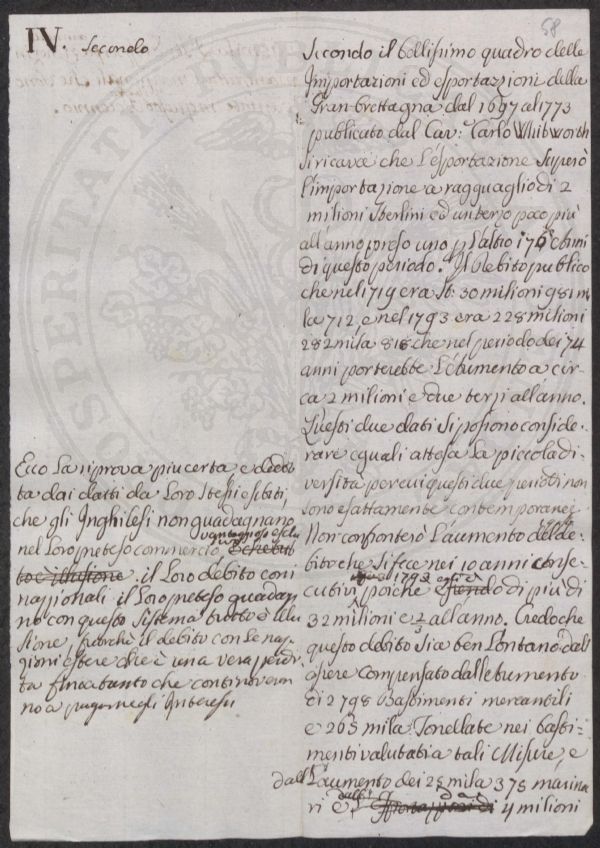 IV. Secondo
58
Secondo il bellissimo quadro delle
Importazioni ed esportazzioni della
Gran brettagna dal 1697 al 1773
publicato dal Cav: Carlo Whitworth
si ricava che l'esportazione superò
l'importazione a ragguaglio di 2
milioni Sterlini ed un terzo poco più
all'anno preso uno p l'altro i 76 anni
di questo periodo. Il Debito publico
che nel 1719 era St: 30 milioni 981 mi
la 712, e nel 1793 era 228 milioni
282 mila 818 che nel periodo dei 74
anni porterebbe l'Aumento a cir
ca 2 milioni e due terzi all'anno.
Questi due dati si possono conside
rare eguali attesa la piccola di
versità per cui questi due periodi non
sono esattamente contemporanei
Non confronterò l'aumento del de
bito che si fece nei 10 anni conse
cutivi poichè di più di
1793 egli è
32 milioni e 2/3 all'anno. Credo che
questo debito sia ben lontano dall
essere compensato dall'aumento
di 2798 Bastimenti mercantili
e 263 mila Tonellate nei basti
menti valutati a tali Misure, e
dall'aumento dei 25 mila 378 marina
ri e dalli 4 milioni
Ecco la riprova piu certa e dedot
ta dai datti da Loro stessi esibiti,
che gli Inghilesi non guadagnano
vantaggioso esclu
nel Loro preteso commercio
il Loro debito coni
nazzionali il Loro preteso guadag
no con questo sistema tutto è illu
sione, perchè il debito con le naz
zioni estere è una vera perdi
ta fino a tanto che continoveran
no a pagarne gli Interessi